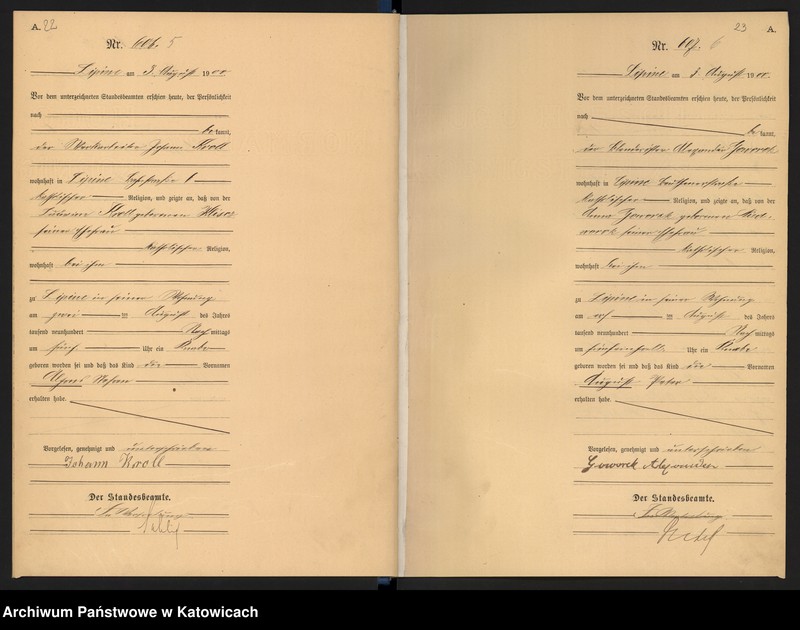 A. 22
Nr. 606. 5
Lipine am 3. August 1900
Vor dem unterzeichneten Standesbeamten erschien heute, der Persönlichkeit
nach
be kannt,
der Johann Kroll
wohnhaft in Lipine 1
katholischer Religion, und zeigte an, daß von der
Kroll geborenen
seiner Ehefrau
katholischer Religion,
wohnhaft bei ihm
zu Lipine in seiner Wohnung
am zwei ten August des Jahres
tausend neunhundert Nach mittags
um fünf Uhr ein Knabe
geboren worden sei und daß das Kind die Vornamen
erhalten habe.
Vorgelesen, genehmigt und unterschrieben
Johann Kroll
Der Standesbeamte.
In Vertretung
23 A.
Nr. 607. 6
Lipine am 3. August 1900.
Vor dem unterzeichneten Standesbeamten erschien heute, der Persönlichkeit
nach
be kannt,
der Alexander Jaworek
wohnhaft in Lipine Beuthenerstraße
katholischer Religion, und zeigte an, daß von der
Anna Jaworek geborenen
seiner Ehefrau
katholischer Religion,
wohnhaft bei ihm
zu Lipine in seiner Wohnung
am ten August des Jahres
tausend neunhundert Nach mittags
um Uhr ein Knabe
geboren worden sei und daß das Kind die Vornamen
August Peter
erhalten habe.
Vorgelesen, genehmigt und unterschrieben
Jaworek Alexander
Der Standesbeamte.
In Vertretung
Archiwum Państwowe w Katowicach